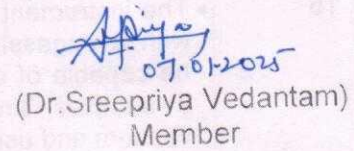 07.01.2025
(Dr.Sreepriya Vedantam)
Member